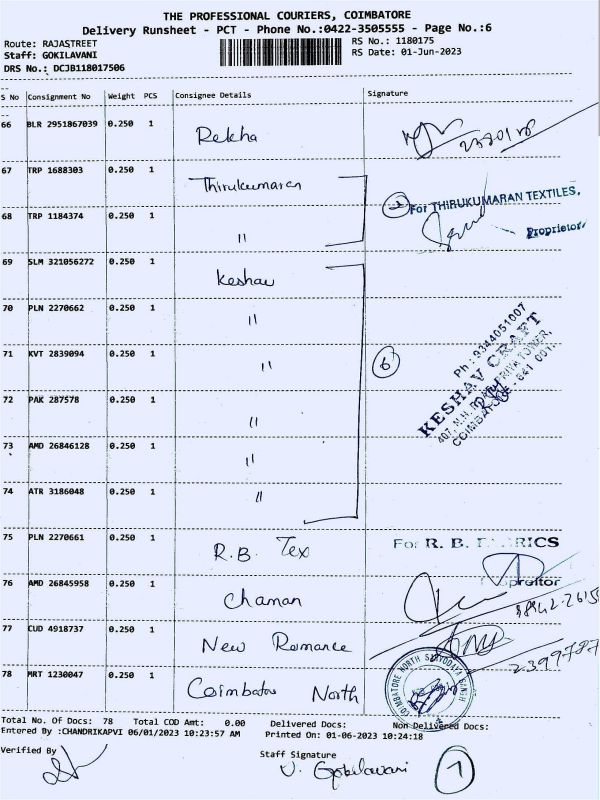 THE PROFESSIONAL COURIERS, COIMBATORE
Delivery Runsheet - PCT - Phone No.:0422-3505555 - Page No.:6
Route: RAJASTREET
RS No.: 1180175
Staff: GOKILAVANI
RS Date: 01-Jun-2023
DRS No.: DCJB118017506
S No Consignment No Weight PCS Consignee Details Signature
66 BLR 2951867039 0.250 1 Rekha
67 TRP 1688303 0.250 1 Thirukumaran
For THIRUKUMARAN TEXTILES,
68 TRP 1184374 0.250 1 "
Proprietor
69 SLM 321056272 0.250 1 Keshav
70 PLN 2270662 0.250 1 "
71 KVT 2839094 0.250 1 "
6
Ph : 9344051007
KESHAV CRAFT
72 PAK 287578 0.250 1 "
73 AMD 26846128 0.250 1 "
74 ATR 3186048 0.250 1 "
75 PLN 2270661 0.250 1 R.B. Tex
For R. B.
76 AMD 26845958 0.250 1 Chaman
77 CUD 4918737 0.250 1 New Romance
2399787
78 MRT 1230047 0.250 1 Coimbatore North
Total No. Of Docs: 78 Total COD Amt: 0.00 Delivered Docs: Non Delivered Docs:
Entered By :CHANDRIKAPVI 06/01/2023 10:23:57 AM Printed On: 01-06-2023 10:24:18
Verified By
Staff Signature
V. Gokilavani
7